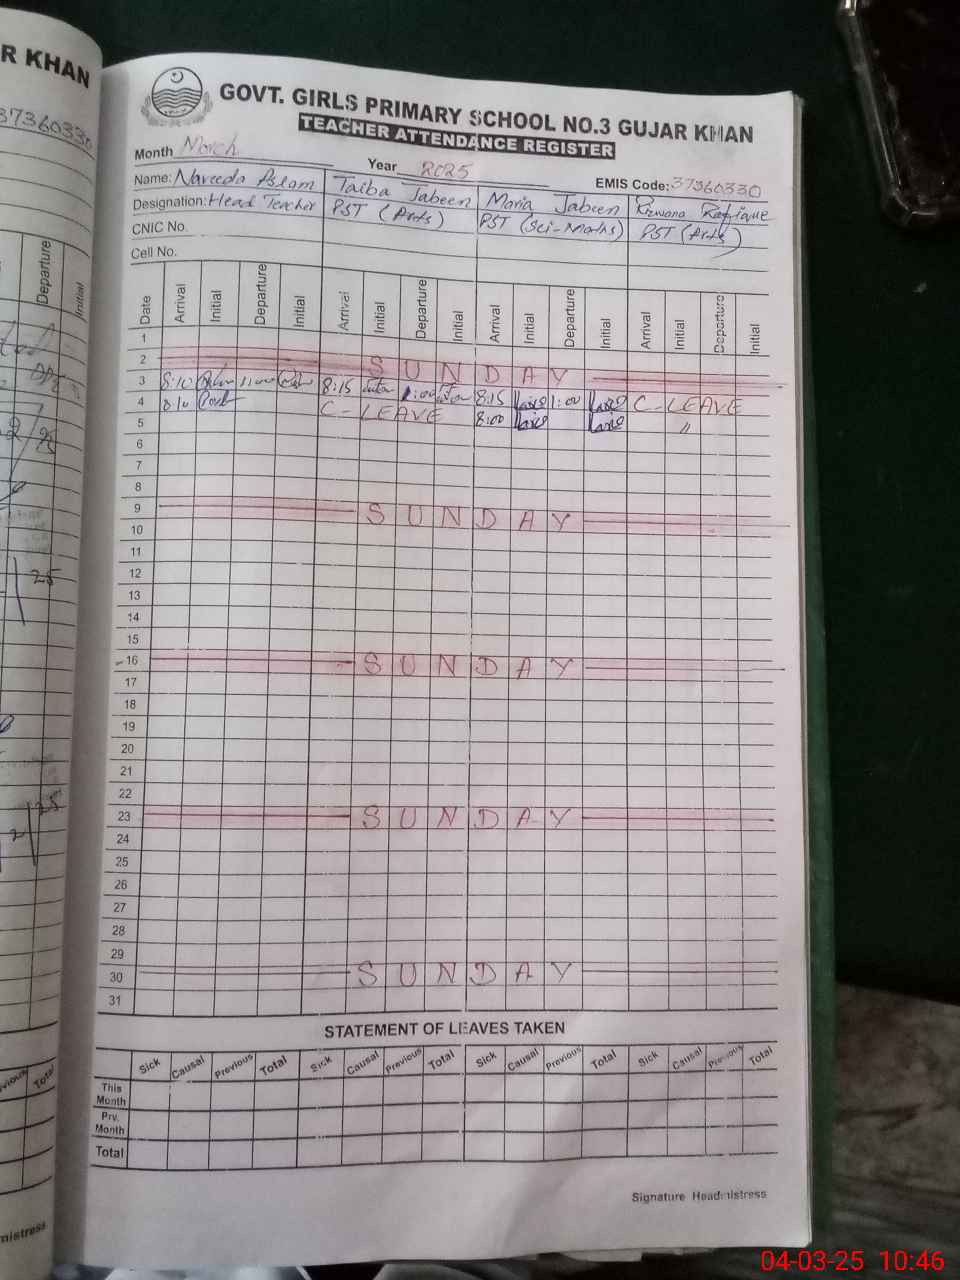 R KHAN
37360330
Departure
Initial
GOVT. GIRLS PRIMARY SCHOOL NO.3 GUJAR KHAN
TEACHER ATTENDANCE REGISTER
Month March Year 2025 EMIS Code: 37360330
Name: Naveeda Aslam Taiba Jabeen Maria Jabeen Rizwana Rafique
Designation: Head Teacher PST (Arts) PST (Sci-Maths) PST (Arts)
CNIC No.
Cell No.
Date Arrival Initial Departure Initial Arrival Initial Departure Initial Arrival Initial Departure Initial Arrival Initial Departure Initial
1
2 SUNDAY
3 8:10 11:00 8:15 1:00 8:15 1:00 C-LEAVE
4 8:10 C-LEAVE 8:00 〃
5
6
7
8
9 SUNDAY
10
11
12
13
14
15
16 SUNDAY
17
18
19
20
21
22
23 SUNDAY
24
25
26
27
28
29
30 SUNDAY
31
STATEMENT OF LEAVES TAKEN
Sick Causal Previous Total Sick Causal Previous Total Sick Causal Previous Total Sick Causal Previous Total
This Month
Prv. Month
Total
Signature Headmistress
04-03-25 10:46